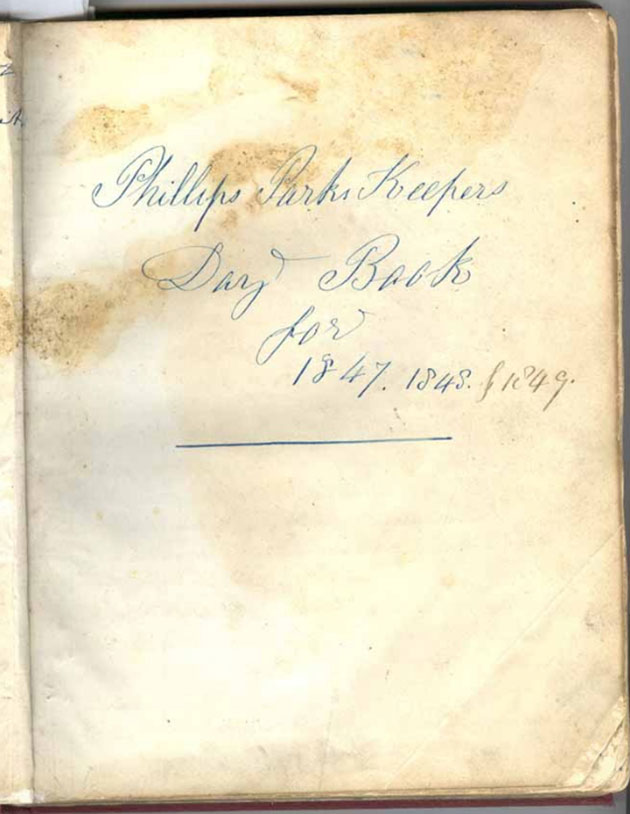 Phillips Parks Keepers
Day Book
for
1847. 1848. & 1849.